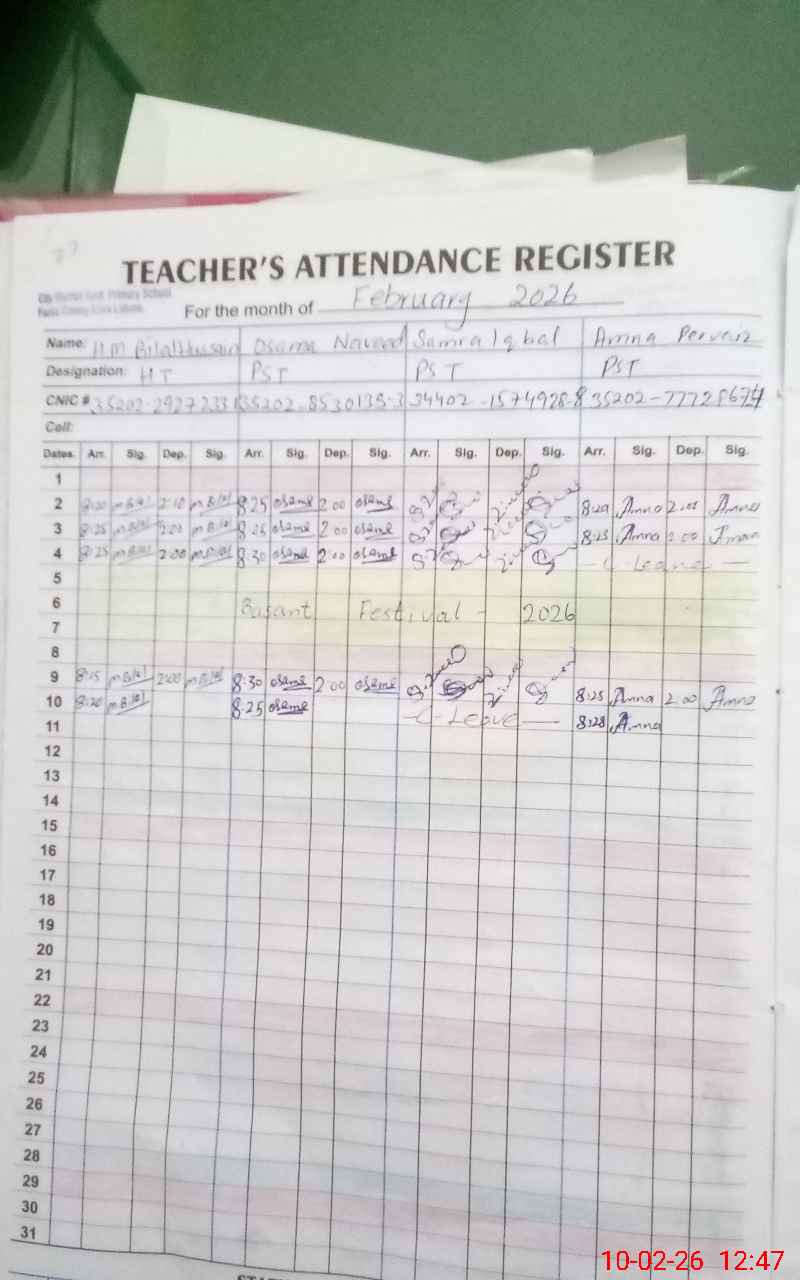 TEACHER'S ATTENDANCE REGISTER
City District Govt. Primary School
For the month of February 2026
Name: H.M Bilal Hussain Osama Naveed Samra Iqbal Amna Pervaiz
Designation: HT PST PST PST
CNIC # 35202-2927233 35202-8530139-3 34402-1574928-8 35202-7772867
Cell:
Dates Arr. Sig. Dep. Sig. Arr. Sig. Dep. Sig. Arr. Sig. Dep. Sig. Arr. Sig. Dep. Sig.
1
2 8:20 m Bilal 2:10 m Bilal 8:25 osama 2:00 osama 8:29 Amna 2:00 Amna
3 8:25 m Bilal 2:00 m Bilal 8:25 osama 2:00 osama 8:25 Amna 2:00 Amna
4 8:25 m Bilal 2:00 m Bilal 8:30 osama 2:00 osama — C Leave —
5
6 Basant Festival - 2026
7
8
9 8:15 m Bilal 2:00 m Bilal 8:30 osama 2:00 osama 8:25 Amna 2:00 Amna
10 8:20 m Bilal 8:25 osama — C-Leave — 8:28 Amna
11
12
13
14
15
16
17
18
19
20
21
22
23
24
25
26
27
28
29
30
31
10-02-26 12:47